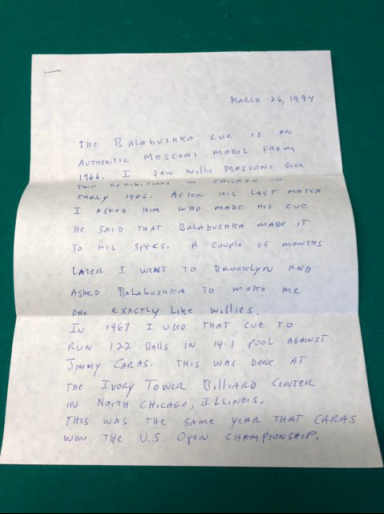 MARCH 26, 1994
THE BALABUSHKA CUE IS AN
AUTHENTIC MOSCONI MODEL FROM
1966. I SAW WILLIE MOSCONI GIVE
TWO EXHIBITIONS IN CHICAGO IN
EARLY 1966. AFTER HIS LAST MATCH
I ASKED HIM WHO MADE HIS CUE
HE SAID THAT BALABUSHKA MADE IT
TO HIS SPECS. A COUPLE OF MONTHS
LATER I WENT TO BROOKLYN AND
ASKED BALABUSHKA TO MAKE ME
ONE EXACTLY LIKE WILLIES.
IN 1967 I USED THAT CUE TO
RUN 122 BALLS IN 14.1 POOL AGAINST
JIMMY CARAS. THIS WAS DONE AT
THE IVORY TOWER BILLIARD CENTER
IN NORTH CHICAGO, ILLINOIS.
THIS WAS THE SAME YEAR THAT CARAS
WON THE U.S OPEN CHAMPIONSHIP.